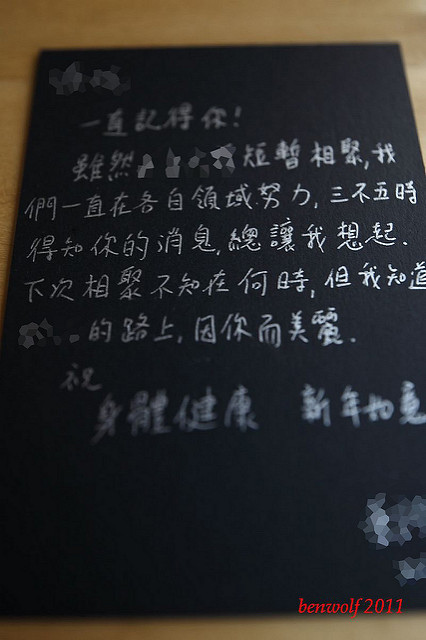 一直記得你!
雖然 短暫相聚,我
們一直在各自領域努力,三不五時
得知你的消息,總讓我想起.
下次相聚不知在何時,但我知道
的路上,因你而美麗.
祝
身體健康 新年如意
benwolf 2011